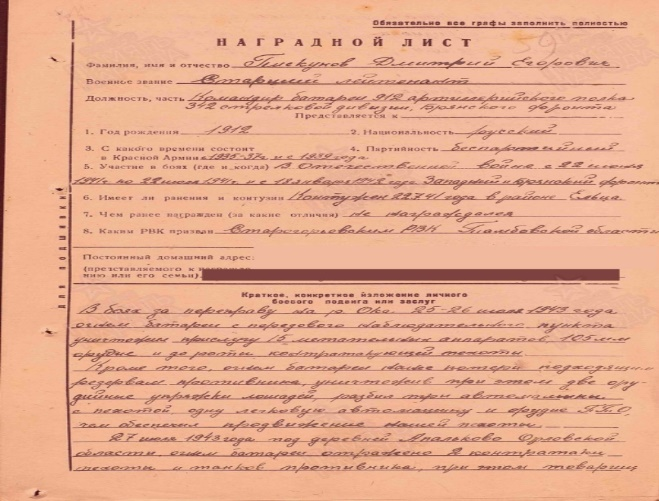 Обязательно все графы заполнить полностью
НАГРАДНОЙ ЛИСТ
Фамилия, имя и отчество Пискунов Дмитрий Егорович
Военное звание Старший лейтенант
Должность, часть Командир батареи 912 артиллерийского полка
342 стрелковой дивизии, Брянского фронта
Представляется к
1. Год рождения 1912 2. Национальность русский
3. С какого времени состоит
в Красной Армии с 1935-37г. и с 1939 года 4. Партийность беспартийный
5. Участие в боях (где и когда) В Отечественной войне с 22 июня
1941г по 22 июля 1941г. и с 18 января 1942 года Западный и Брянский фронт
6. Имеет ли ранения и контузии Контужен 22.7.41 года в районе Ельца
7. Чем ранее награжден (за какие отличия) Не награждался
8. Каким РВК призван Старогорьовским РВК Тамбовской области
Постоянный домашний адрес:
(представляемого к
нию или его семьи).
Краткое, конкретное изложение личного
боевого подвига или заслуг
В боях за переправу на р. Ока 25-26 июля 1943 года
огнем батареи с передового наблюдательного пункта
уничтожил прислугу 15 метательных аппаратов, 105-мм
орудие и до роты контратакующей пехоты.
Кроме того, огнем батареи нанес потери подходящим
резервам противника, уничтожив при этом две ору-
дийные упряжки лошадей, разбил три автомашины
с пехотой, одну легковую автомашину и орудие П.Т.О.
чем обеспечил продвижение нашей пехоты.
27 июля 1943 года под деревней Апальково Орловской
области, огнем батареи отражено 2 контратаки
пехоты и танков противника, при этом товарищ
для подшивки